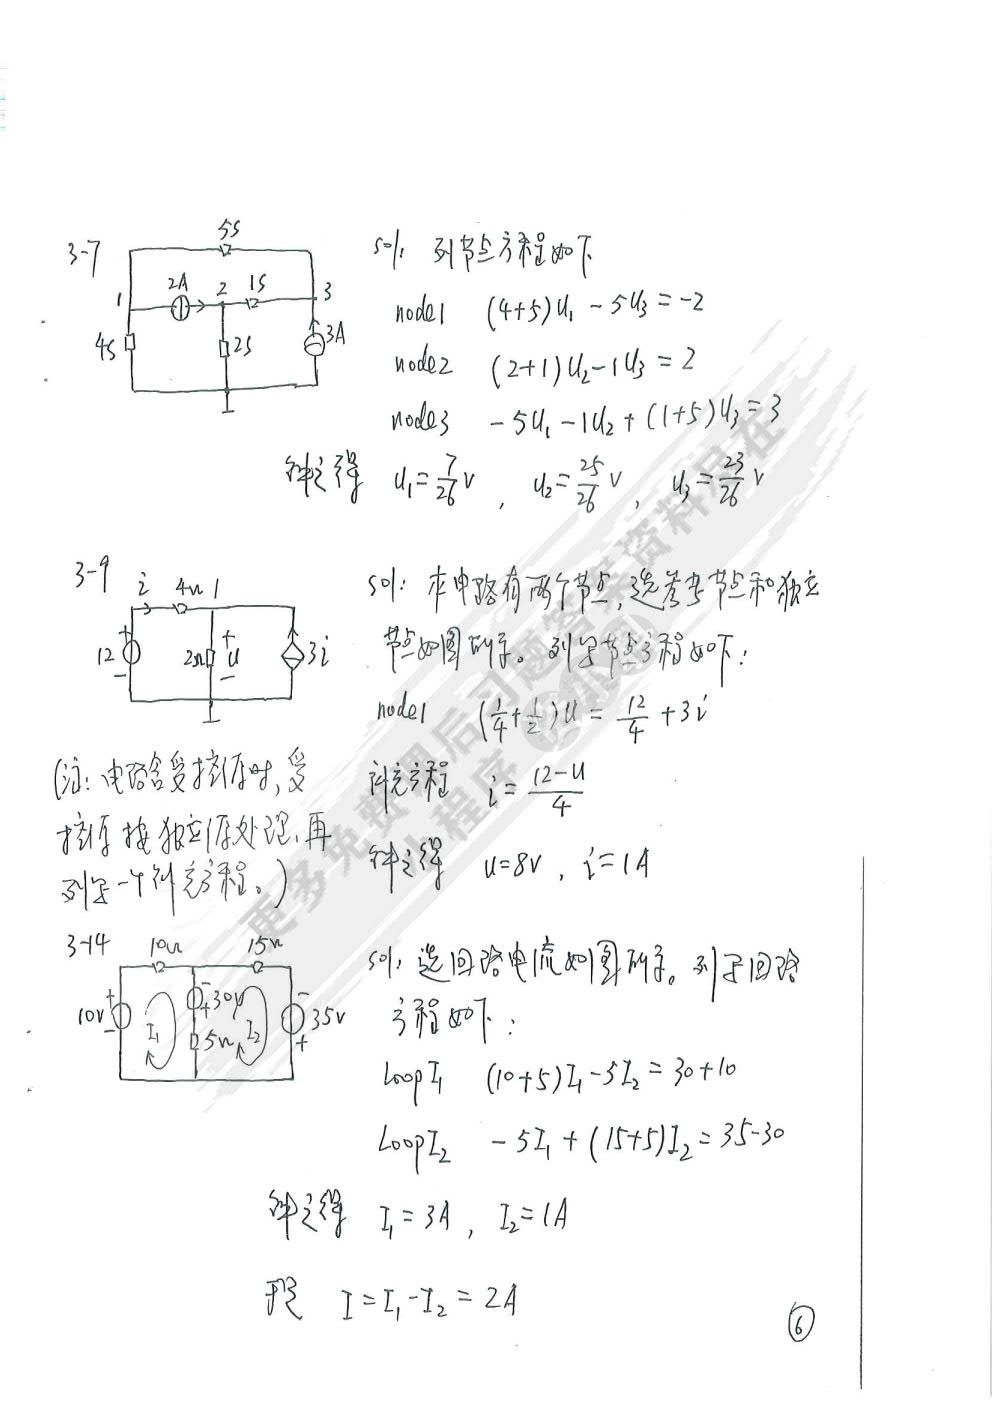 3-7
5S
2A 2 1S
1 3
4S 2S 3A
sol: 列节点方程如下
node1 (4+5)U₁ - 5U₃ = -2
node2 (2+1)U₂ - 1U₃ = 2
node3 - 5U₁ - 1U₂ + (1+5)U₃ = 3
解之得 U₁ = 7/26 V , U₂ = 25/26 V , U₃ = 23/26 V
3-9
i 4Ω 1
12 + - 2Ω + U - 3i
sol: 本电路有两个节点,选参考节点和独立
节点如图所示。列写节点方程如下:
node1 (1/4 + 1/2)U = 12/4 + 3i
补充方程 i = (12-U)/4
解之得 U=8V , i=1A
(注: 电路含受控源时,受
控源按独立源处理,再
列写一个补充方程。)
3-14
10Ω 15Ω
10V + - I₁ - + 30V 5Ω I₂ - + 35V
sol: 选回路电流如图所示。列写回路
方程如下:
Loop I₁ (10+5)I₁ - 5I₂ = 30+10
Loop I₂ - 5I₁ + (15+5)I₂ = 35-30
解之得 I₁ = 3A , I₂ = 1A
I = I₁ - I₂ = 2A
6
更多免费课后习题答案资料尽在
小程序